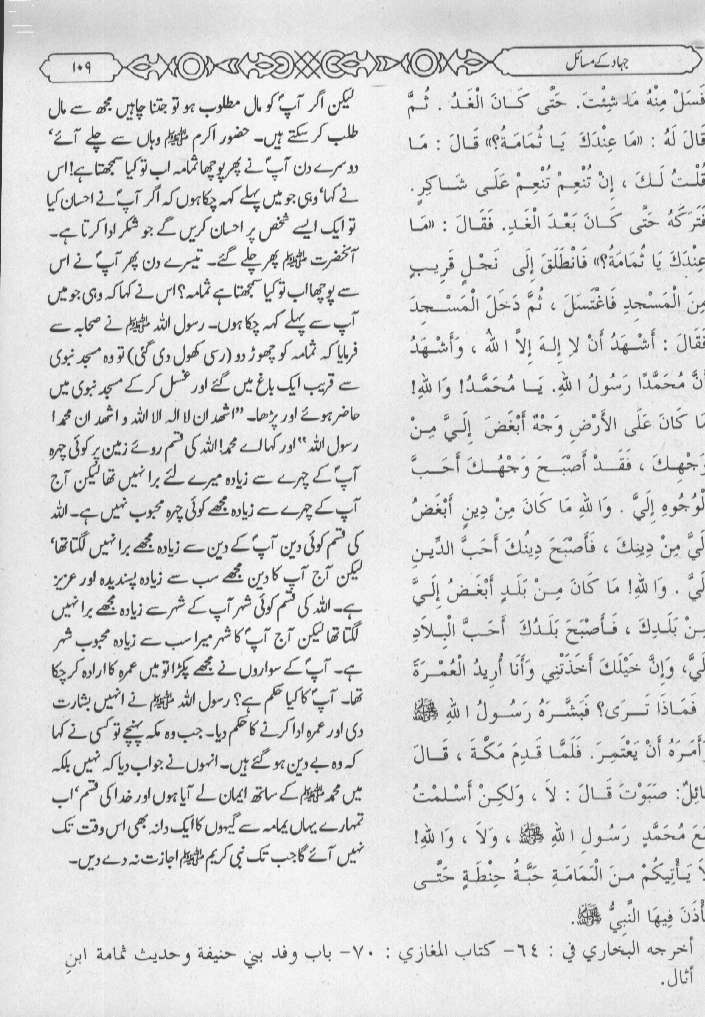 جہاد کے مسائل
۱۰۹
فَسَلْ مِنْهُ مَا شِئْتَ. حَتَّى كَانَ الْغَدُ . ثُمَّ
قَالَ لَهُ : «مَا عِنْدَكَ يَا ثُمَامَةُ؟» قَالَ : مَا
قُلْتُ لَكَ ، إِنْ تُنْعِمْ تُنْعِمْ عَلَى شَاكِرٍ.
فَتَرَكَهُ حَتَّى كَانَ بَعْدَ الْغَدِ. فَقَالَ : «مَا
عِنْدَكَ يَا ثُمَامَةُ؟» فَانْطَلَقَ إِلَى نَجْلٍ قَرِيبٍ
مِنَ الْمَسْجِدِ فَاغْتَسَلَ ، ثُمَّ دَخَلَ الْمَسْجِدَ
فَقَالَ : أَشْهَدُ أَنْ لاَ إِلهَ إِلاَّ اللهُ ، وَأَشْهَدُ
أَنَّ مُحَمَّدًا رَسُولُ اللهِ. يَا مُحَمَّدُ! وَاللهِ!
مَا كَانَ عَلَى الأَرْضِ وَجْهٌ أَبْغَضَ إِلَيَّ مِنْ
وَجْهِكَ ، فَقَدْ أَصْبَحَ وَجْهُكَ أَحَبَّ
الْوُجُوهِ إِلَيَّ . وَاللهِ مَا كَانَ مِنْ دِينٍ أَبْغَضُ
إِلَيَّ مِنْ دِينِكَ ، فَأَصْبَحَ دِينُكَ أَحَبَّ الدِّينِ
إِلَيَّ . وَاللهِ! مَا كَانَ مِنْ بَلَدٍ أَبْغَضُ إِلَيَّ
مِنْ بَلَدِكَ ، فَأَصْبَحَ بَلَدُكَ أَحَبَّ الْبِلاَدِ
إِلَيَّ، وَإِنَّ خَيْلَكَ أَخَذَتْنِي وَأَنَا أُرِيدُ الْعُمْرَةَ
، فَمَاذَا تَرَى؟ فَبَشَّرَهُ رَسُولُ اللهِ ﷺ
وَأَمَرَهُ أَنْ يَعْتَمِرَ. فَلَمَّا قَدِمَ مَكَّةَ ، قَالَ
قَائِلٌ: صَبَوْتَ قَالَ : لاَ ، وَلكِنْ أَسْلَمْتُ
مَعَ مُحَمَّدٍ رَسُولِ اللهِ ﷺ ، وَلاَ ، وَاللهِ!
لاَ يَأْتِيكُمْ مِنَ الْيَمَامَةِ حَبَّةُ حِنْطَةٍ حَتَّى
يَأْذَنَ فِيهَا النَّبِيُّ ﷺ.
لیکن اگر آپؐ کو مال مطلوب ہو تو جتنا چاہیں مجھ سے مال
طلب کر سکتے ہیں۔ حضور اکرم ﷺ وہاں سے چلے آئے‘
دوسرے دن آپؐ نے پھر پوچھا ثمامہ اب تو کیا سمجھتا ہے! اس
نے کہا‘ وہی جو میں پہلے کہہ چکا ہوں کہ اگر آپؐ نے احسان کیا
تو ایک ایسے شخص پر احسان کریں گے جو شکر ادا کرتا ہے۔
آنحضرت ﷺ پھر چلے گئے۔ تیسرے دن پھر آپؐ نے اس
سے پوچھا اب تو کیا سمجھتا ہے ثمامہ؟ اس نے کہا کہ وہی جو میں
آپ سے پہلے کہہ چکا ہوں۔ رسول اللہ ﷺ نے صحابہ سے
فرمایا کہ ثمامہ کو چھوڑ دو (رسی کھول دی گئی) تو وہ مسجد نبوی
سے قریب ایک باغ میں گئے اور غسل کر کے مسجد نبوی میں
حاضر ہوئے اور پڑھا۔ ”اشھد ان لا الہ الا اللہ و اشھد ان محمدا
رسول اللہ“ اور کہا اے محمد! اللہ کی قسم روئے زمین پر کوئی چہرہ
آپؐ کے چہرے سے زیادہ میرے لئے برا نہیں تھا لیکن آج
آپ کے چہرے سے زیادہ مجھے کوئی چہرہ محبوب نہیں ہے۔ اللہ
کی قسم کوئی دین آپؐ کے دین سے زیادہ مجھے برا نہیں لگتا تھا‘
لیکن آج آپ کا دین مجھے سب سے زیادہ پسندیدہ اور عزیز
ہے۔ اللہ کی قسم کوئی شہر آپ کے شہر سے زیادہ مجھے برا نہیں
لگتا تھا لیکن آج آپؐ کا شہر میرا سب سے زیادہ محبوب شہر
ہے۔ آپؐ کے سواروں نے مجھے پکڑا تو میں عمرہ کا ارادہ کر چکا
تھا۔ آپؐ کا کیا حکم ہے؟ رسول اللہ ﷺ نے انہیں بشارت
دی اور عمرہ ادا کرنے کا حکم دیا۔ جب وہ مکہ پہنچے تو کسی نے کہا
کہ وہ بے دین ہو گئے ہیں۔ انہوں نے جواب دیا کہ نہیں بلکہ
میں محمد ﷺ کے ساتھ ایمان لے آیا ہوں اور خدا کی قسم‘ اب
تمہارے یہاں یمامہ سے گیہوں کا ایک دانہ بھی اس وقت تک
نہیں آئے گا جب تک نبی کریم ﷺ اجازت نہ دے دیں۔
أخرجه البخاري في : ٦٤- كتاب المغازي : ٧٠- باب وفد بني حنيفة وحديث ثمامة ابن
أثال.